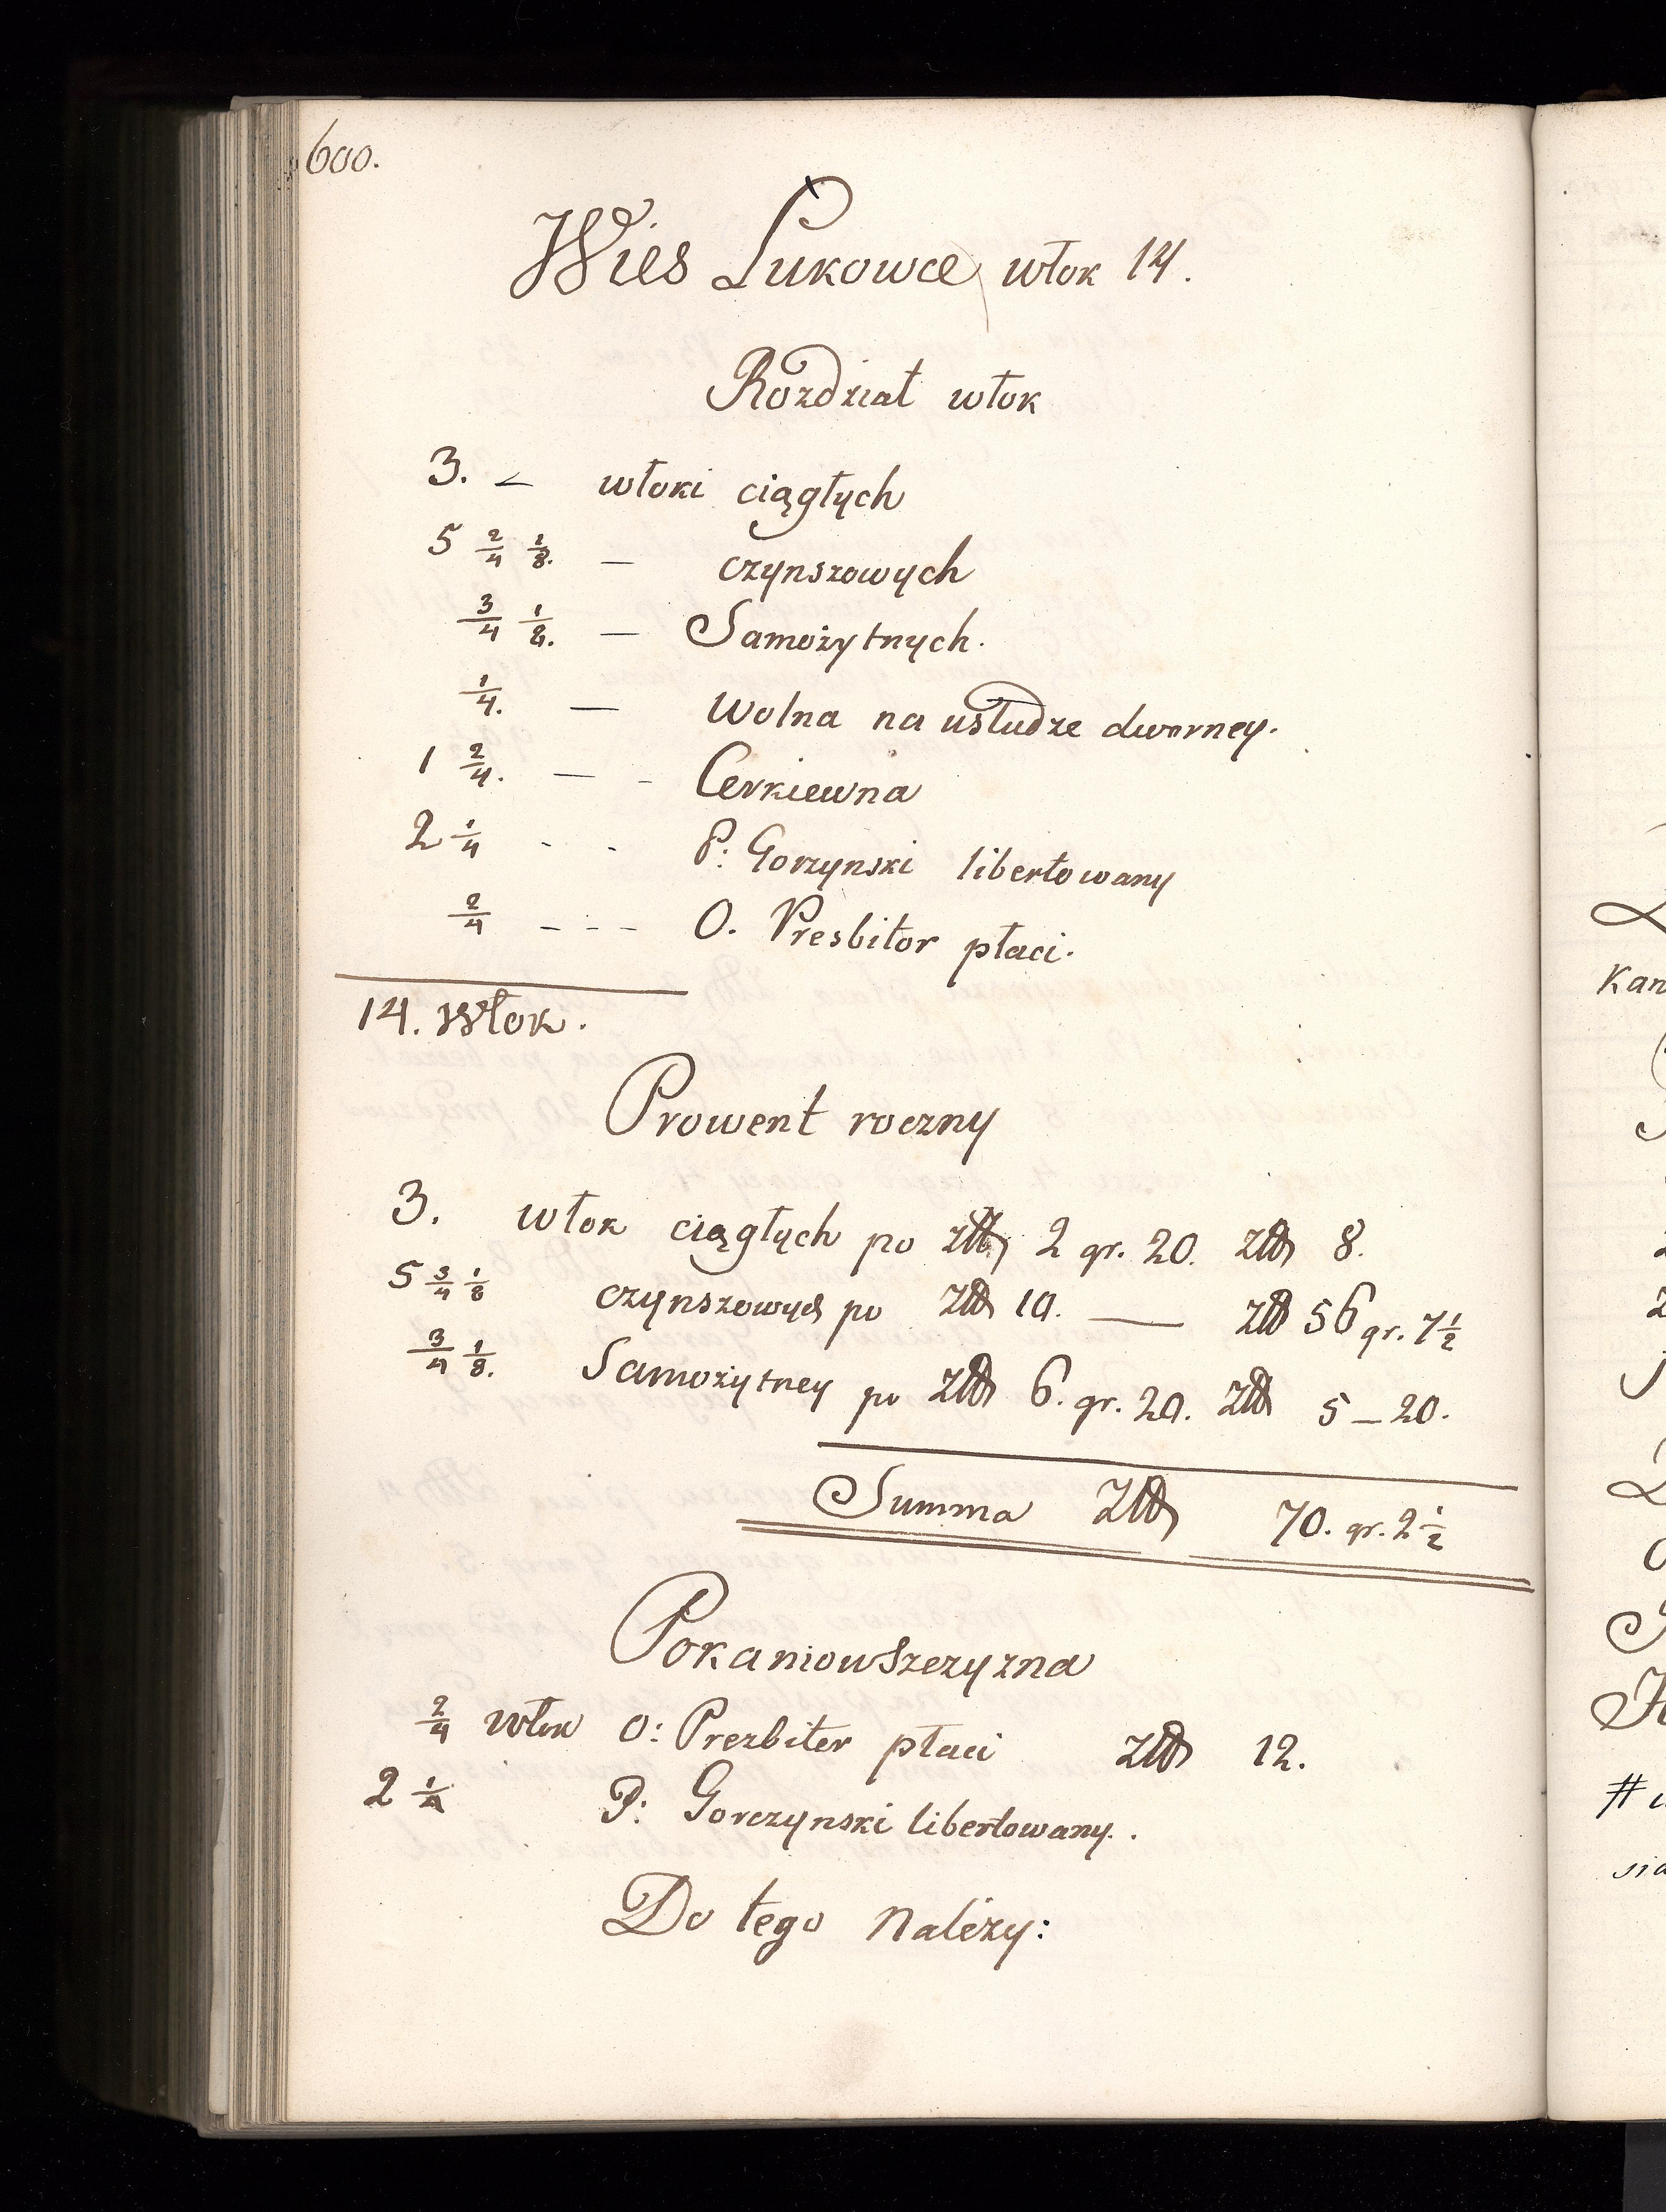 600.
Wies Łukowce włok 14.
Rozdział włok
3. — włoki ciągłych
5 2/4 1/8. — czynszowych
3/4 1/8. — Samożytnych.
1/4. — wolna na usłudze dworney.
1 2/4. — - Cerkiewna
2 1/4 - - P: Gorzynski libertowany
2/4 - - - O. Presbitor płaci.
14. Włok.
Prowent roczny
3. włok ciągłych po zł 2 gr. 20. zł 8.
5 3/4 1/8 czynszowych po zł 10. — zł 56 gr. 7 1/2
3/4 1/8. Samożytney po zł 6. gr. 20. zł 5 — 20.
Summa Zł 70. gr. 2 1/2
Pokaniowszczyzna
2/4 włok O: Prezbiter płaci zł 12.
2 1/4 P: Gorczynski libertowany.
Do tego Należy: